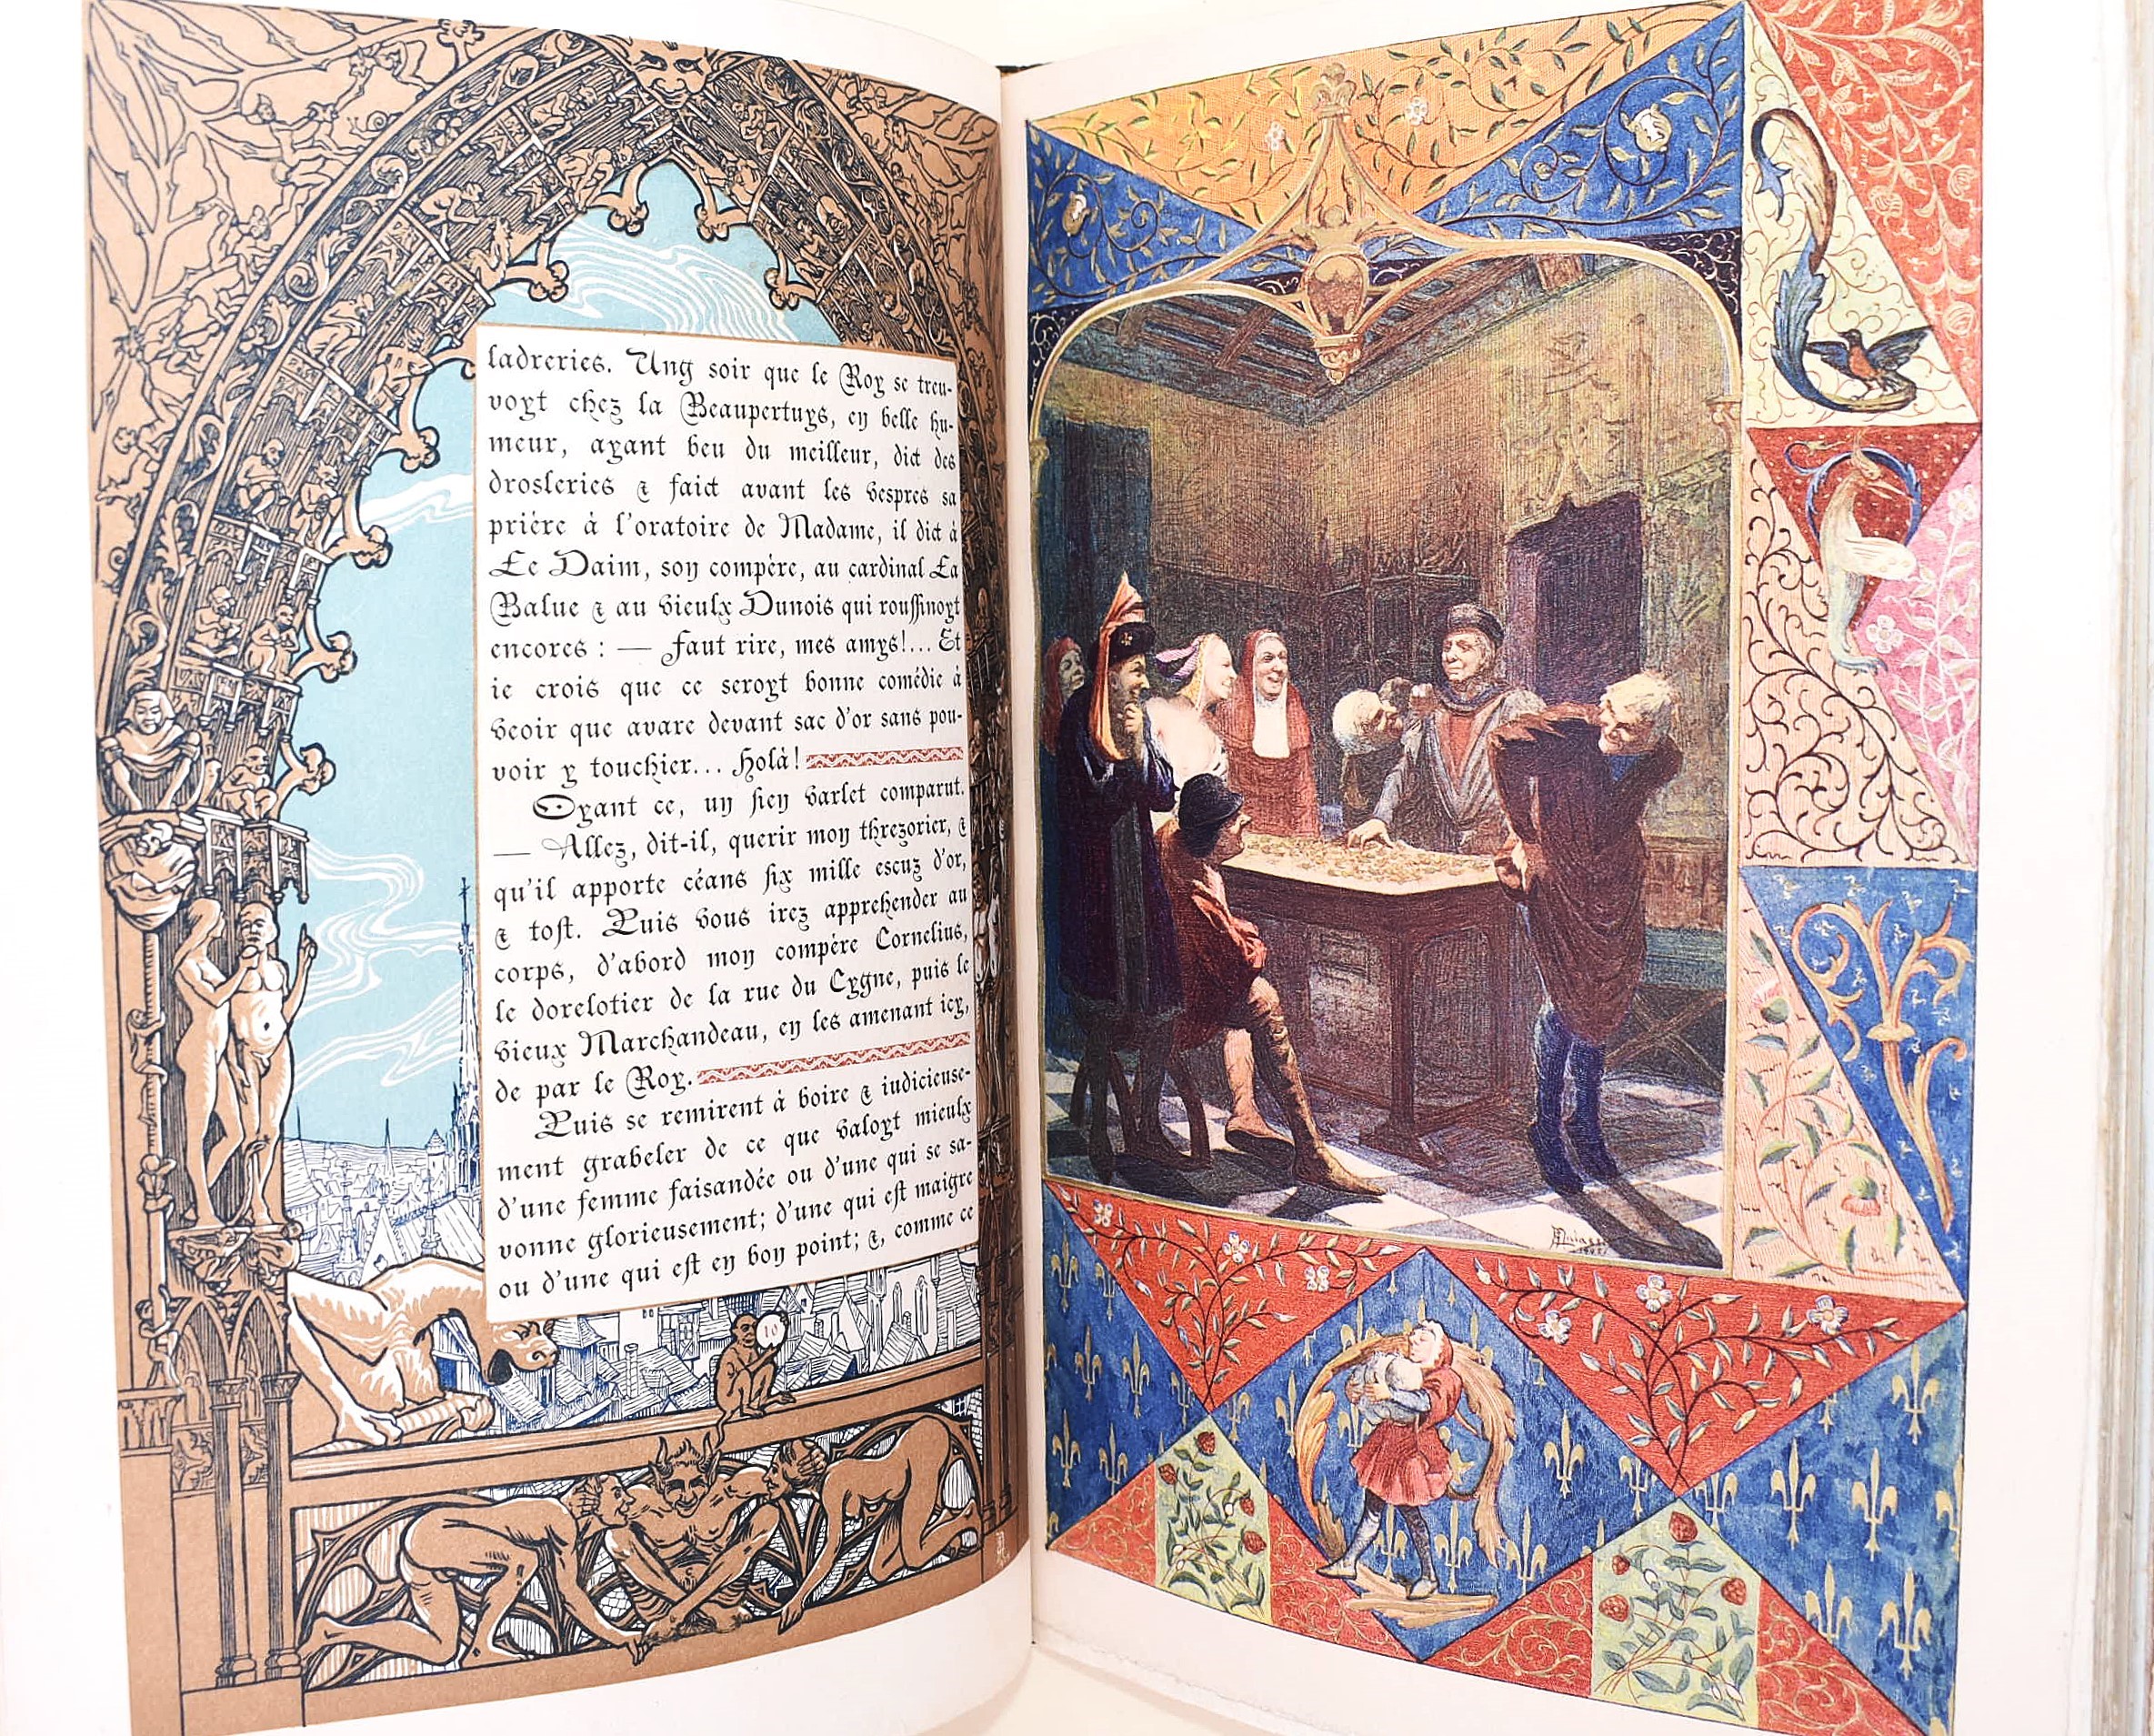 ladreries. Ung soir que le Roy se treu-
voyt chez la Beaupertuys, en belle hu-
meur, ayant beu du meilleur, dict des
drosleries & faict avant les vespres sa
prière à l'oratoire de Madame, il dict à
Le Daim, son compère, au cardinal La
Balue & au vieulx Dunois qui roussinoyt
encores : — Faut rire, mes amys!... Et
ie crois que ce seroyt bonne comédie à
veoir que avare devant sac d'or sans pou-
voir y touchier... Holà!
Oyant ce, un sien varlet comparut.
— Allez, dit-il, querir mon threzorier, &
qu'il apporte céans six mille escuz d'or,
& tost. Puis vous irez apprehender au
corps, d'abord mon compère Cornelius,
le dorelotier de la rue du Cygne, puis le
vieux Marchandeau, en les amenant icy,
de par le Roy.
Puis se remirent à boire & iudicieuse-
ment grabeler de ce que valoyt mieulx
d'une femme faisandée ou d'une qui se sa-
vonne glorieusement; d'une qui est maigre
ou d'une qui est en bon point; &, comme ce
10